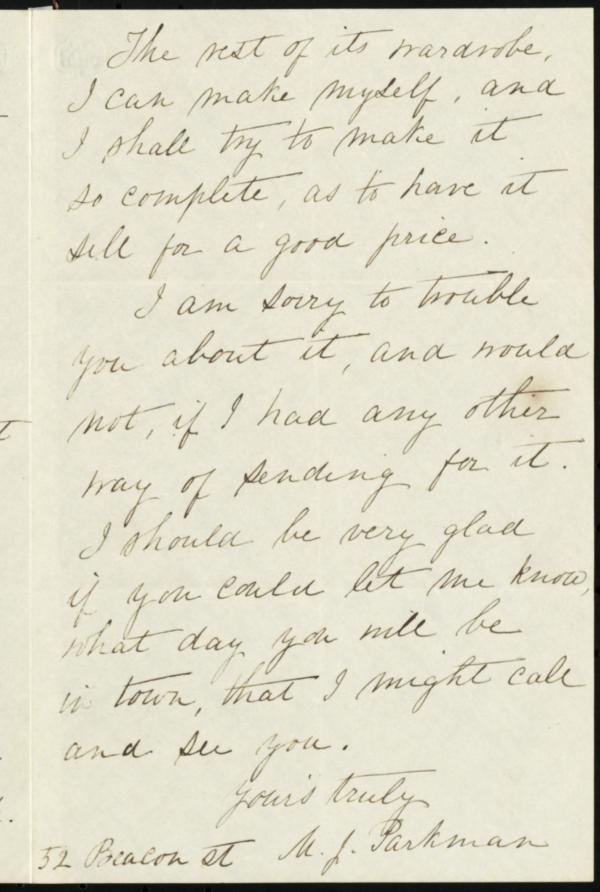 The rest of its wardrobe,
I can make myself, and
I shall try to make it
so complete, as to have it
sell for a good price.
I am sorry to trouble
you about it, and would
not, if I had any other
way of sending for it.
I should be very glad
if you could let me know,
what day you will be
in town, that I might call
and see you.
Yours truly
52 Beacon st M. J. Parkman